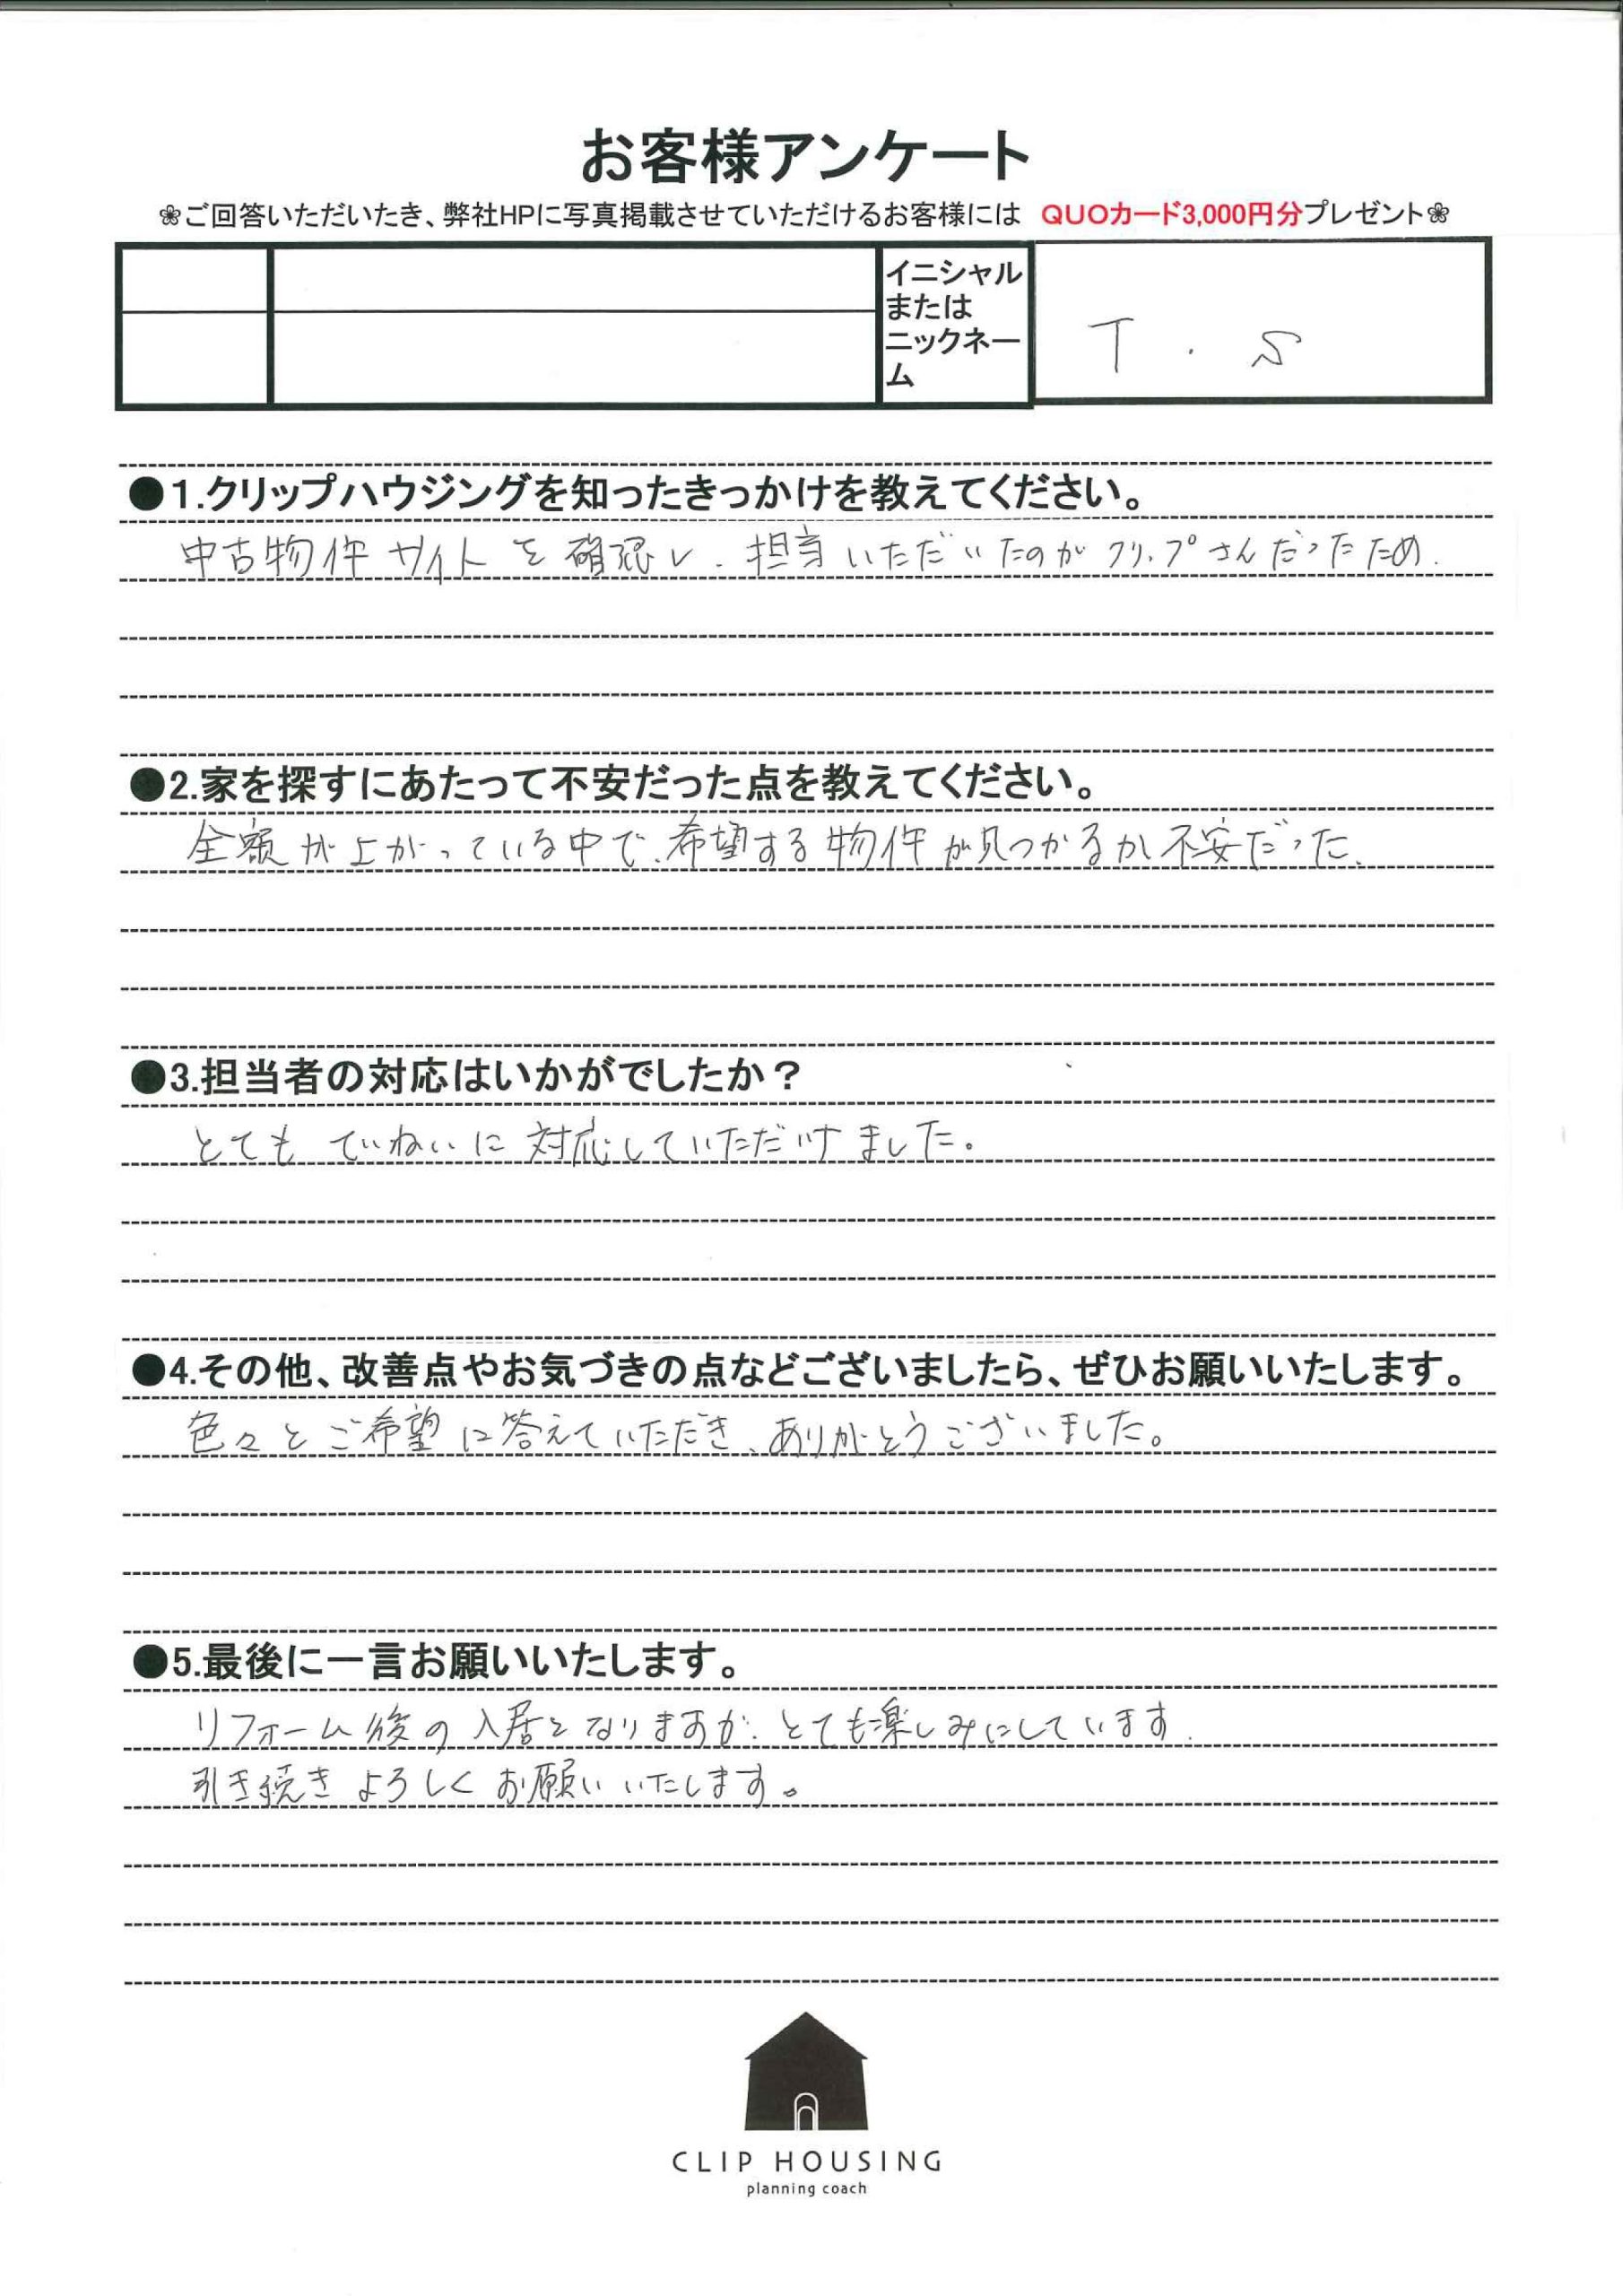 お客様アンケート
❀ご回答いただいたき、弊社HPに写真掲載させていただけるお客様には QUOカード3,000円分プレゼント❀
イニシャル
または
ニックネー
ム
T.S
●1.クリップハウジングを知ったきっかけを教えてください。
中古物件サイトを確認し、担当いただいたのがクリップさんだったため.
●2.家を探すにあたって不安だった点を教えてください。
金額が上がっている中で、希望する物件が見つかるか不安だった、
●3.担当者の対応はいかがでしたか？
とてもていねいに対応していただけました。
●4.その他、改善点やお気づきの点などございましたら、ぜひお願いいたします。
色々とご希望に答えていただき、ありがとうございました。
●5.最後に一言お願いいたします。
リフォーム後の入居となりますが、とても楽しみにしています.
引き続きよろしくお願いいたします。
CLIP HOUSING
planning coach